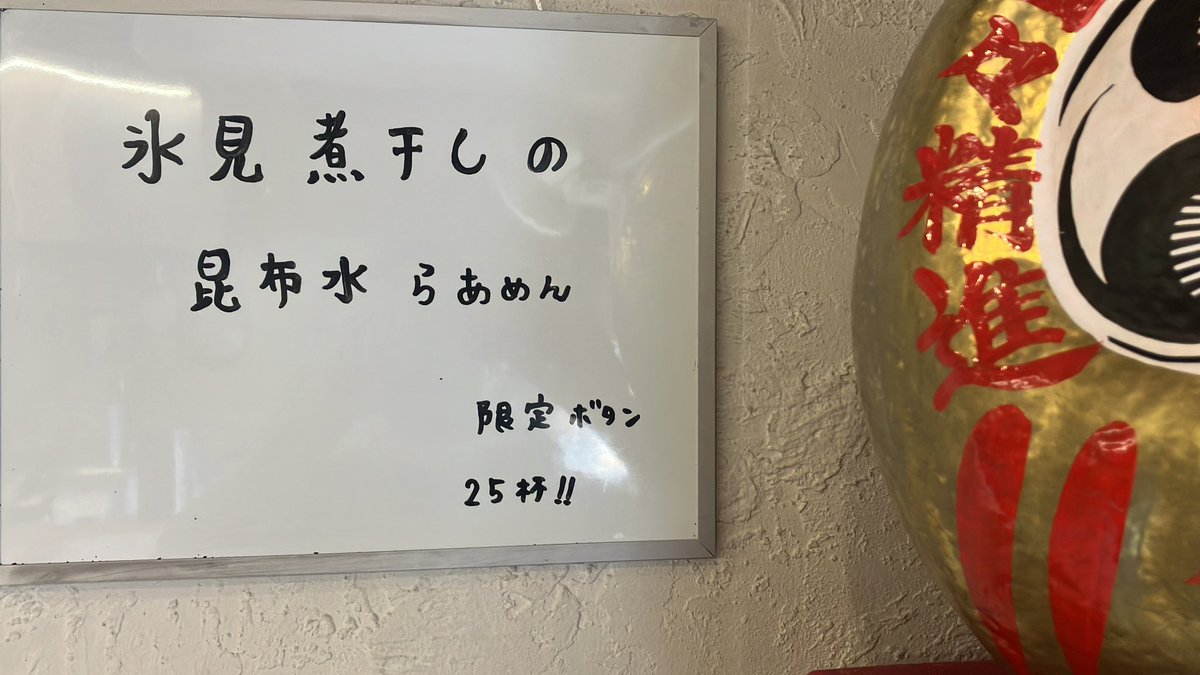 氷見 煮干しの
昆布水 らあめん
限定ボタン
25杯!!
々精進